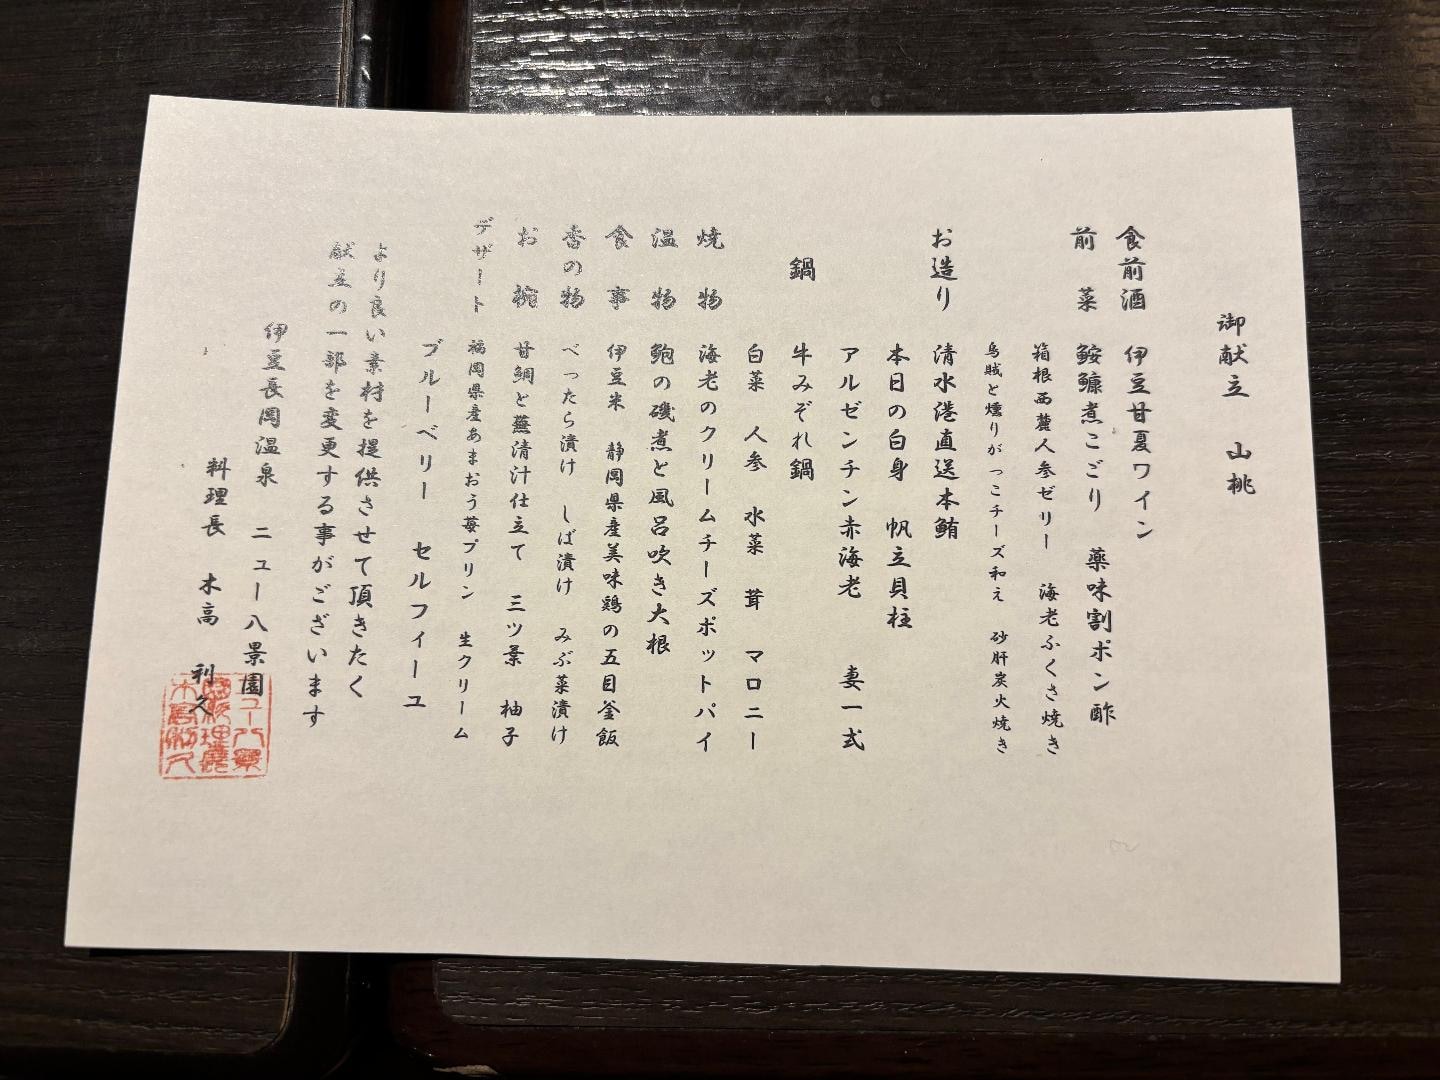 御献立 山桃
食前酒 伊豆甘夏ワイン
前菜 鮟鱇煮こごり 薬味割ポン酢
箱根西麓人参ゼリー 海老ふくさ焼き
烏賊と燻りがっこチーズ和え 砂肝炭火焼き
お造り 清水港直送本鮪
本日の白身 帆立貝柱
アルゼンチン赤海老 妻一式
鍋 牛みぞれ鍋
白菜 人参 水菜 茸 マロニー
焼物 海老のクリームチーズポットパイ
温物 鮑の磯煮と風呂吹き大根
食事 伊豆米 静岡県産美味鶏の五目釜飯
香の物 べったら漬け しば漬け みぶ菜漬け
お椀 甘鯛と蕪清汁仕立て 三ツ葉 柚子
デザート 福岡県産あまおう苺プリン 生クリーム
ブルーベリー セルフィーユ
より良い素材を提供させて頂きたく
献立の一部を変更する事がございます
伊豆長岡温泉 ニュー八景園
料理長 木高 利久